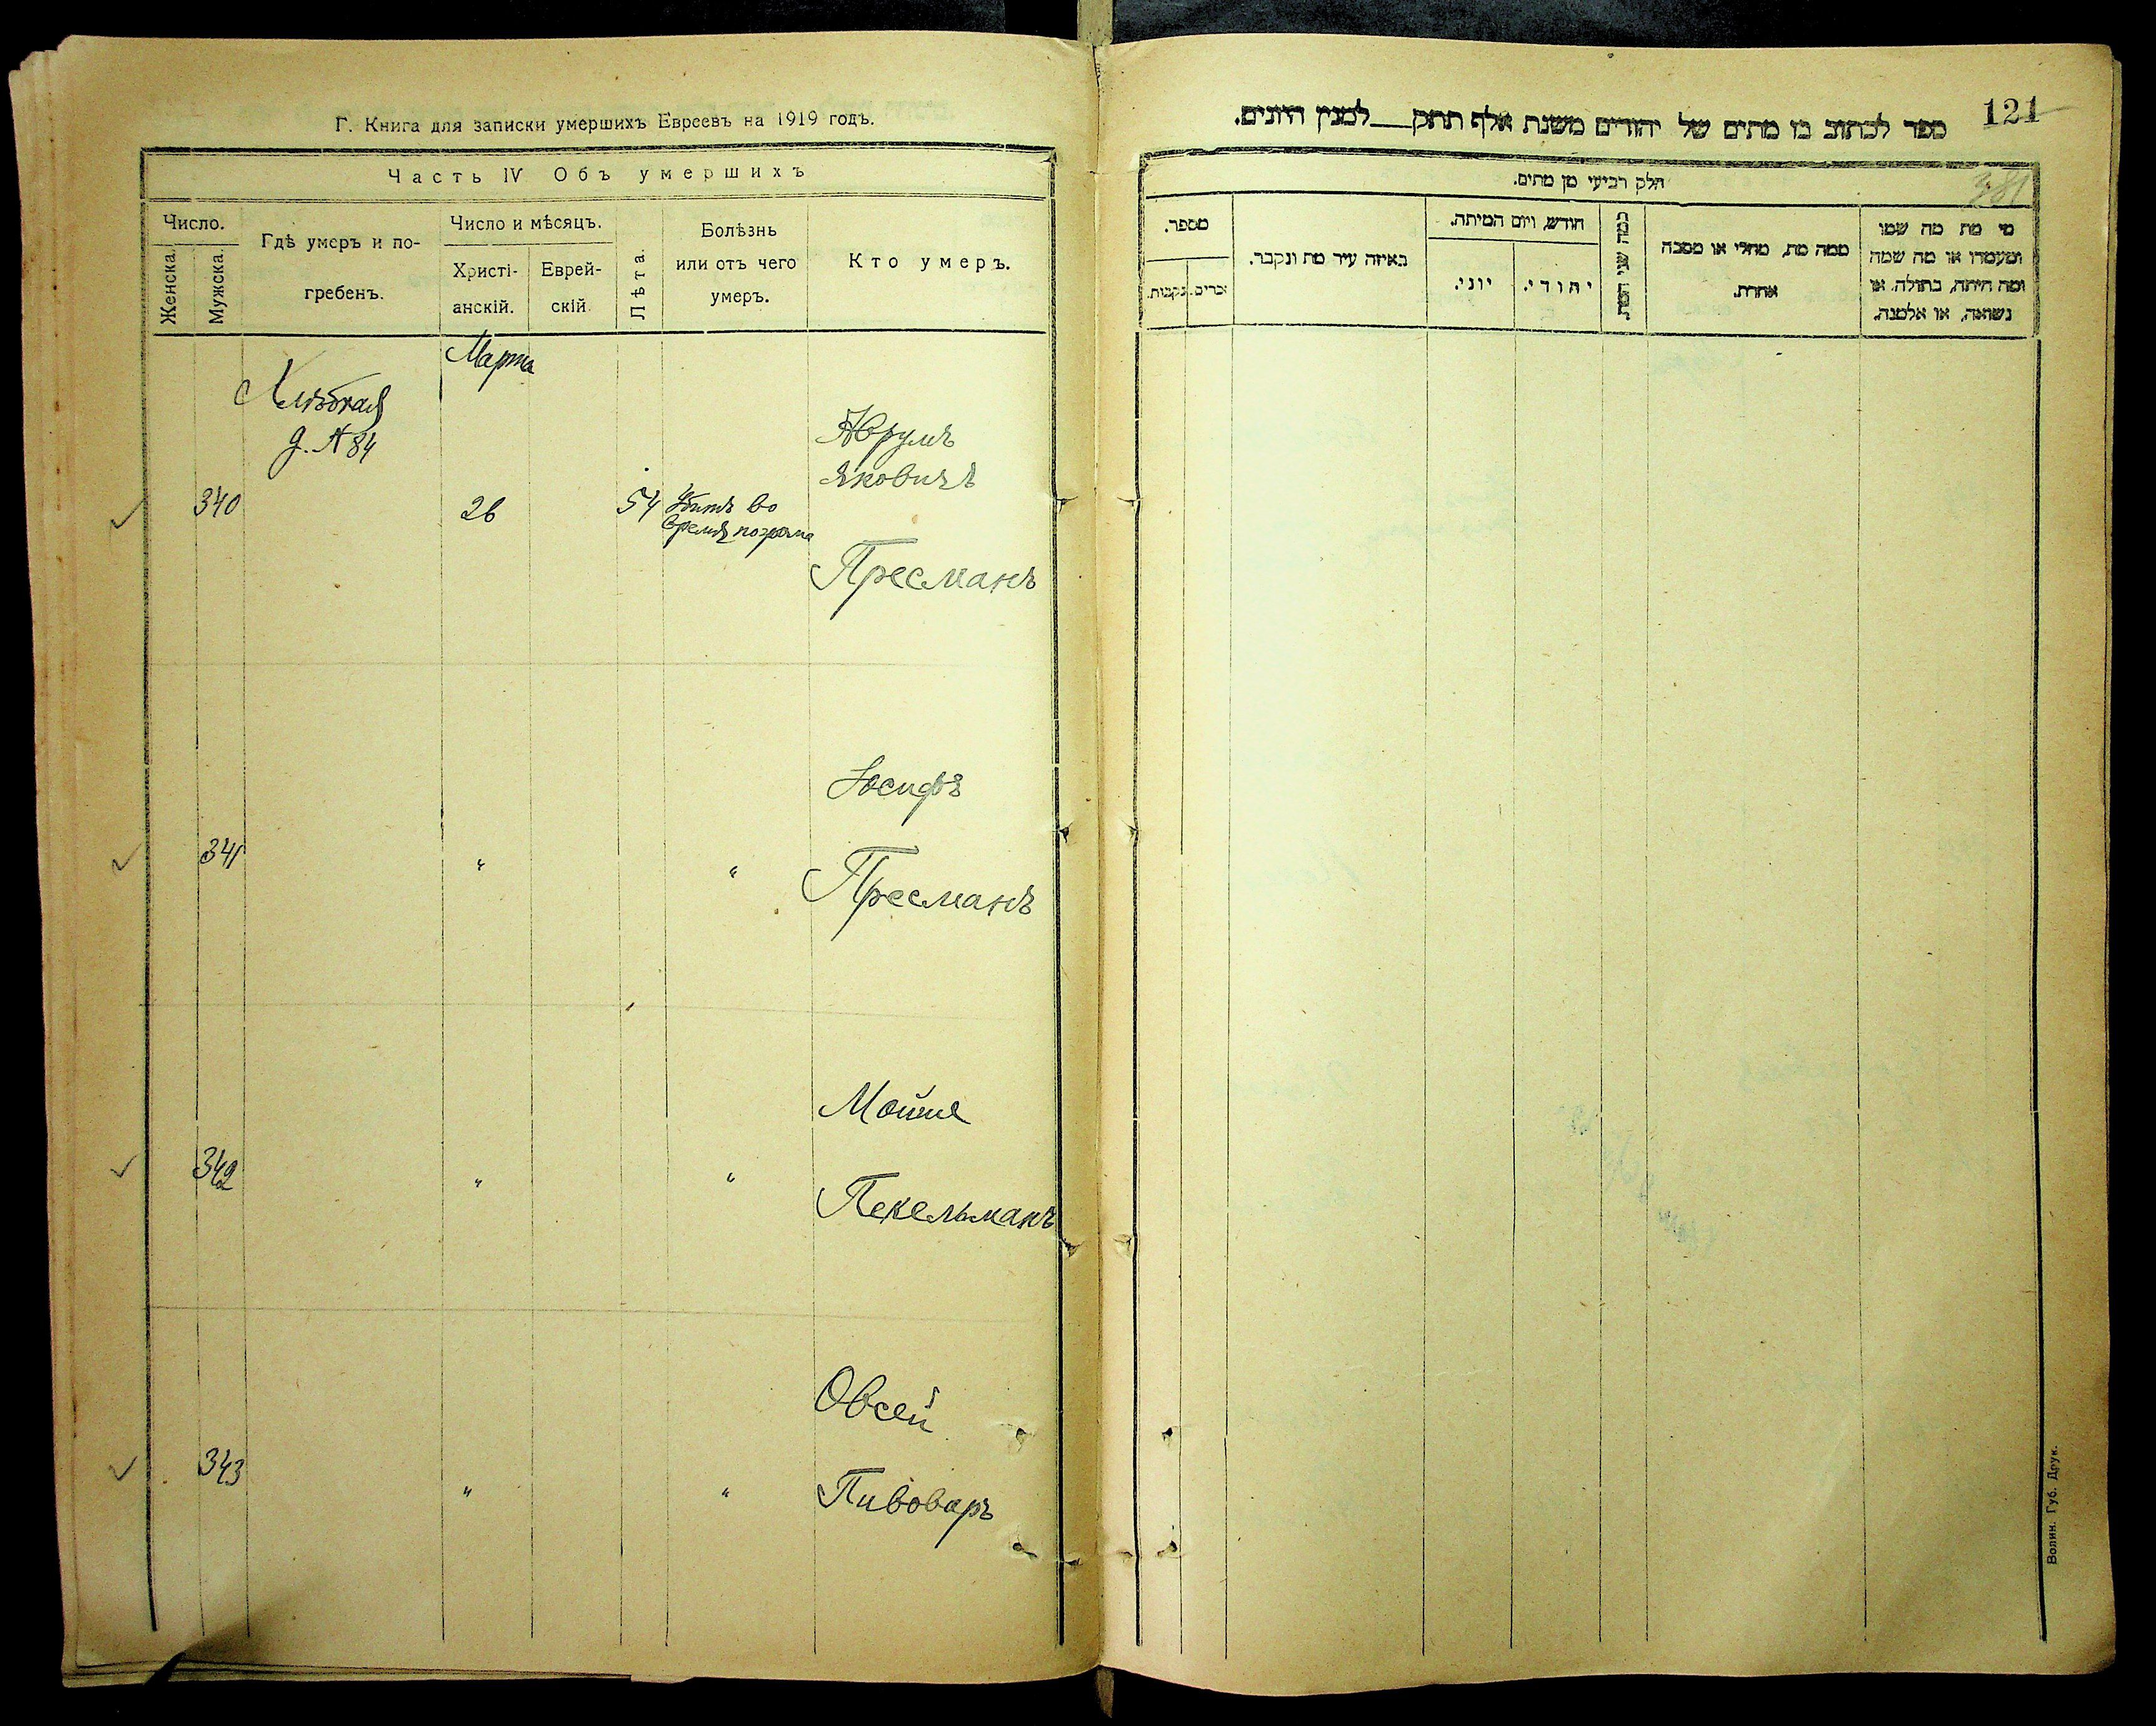 Г. Книга для записки умершихъ Евреевъ на 1919 годъ.
Часть IV Объ умершихъ
Число.
Женска.
Мужска.
Гдѣ умеръ и по-
гребенъ.
Число и мѣсяцъ.
Христі-
анскій.
Еврей-
скій.
Лѣта.
Болѣзнь
или отъ чего
умеръ.
Кто умеръ.
Марта
Хлѣбная
д. № 84
340
26
54
Убитъ во
время погрома
Аврумъ
Яковичъ
Пресманъ
341
"
"
Іосифъ
Пресманъ
342
"
"
Мойше
Пекельманъ
343
"
"
Овсей
Пивоваръ
121
ספר לכתוב בו מתים של יהודים משנת אלף תתק__למנין היונים.
חלק רביעי מן מתים.
מספר.
נקבות.
זכרים.
באיזה עיר מת ונקבר.
חודש, ויום המיתה.
יוני.
יהודי.
כמה שני המת.
ממה מת, מחלי או מסבה
אחרת.
מי מת מה שמו
ומעמדו או מה שמה
ומה היתה, בתולה, או
נשואה, או אלמנה.
Волин. Губ. Друк.